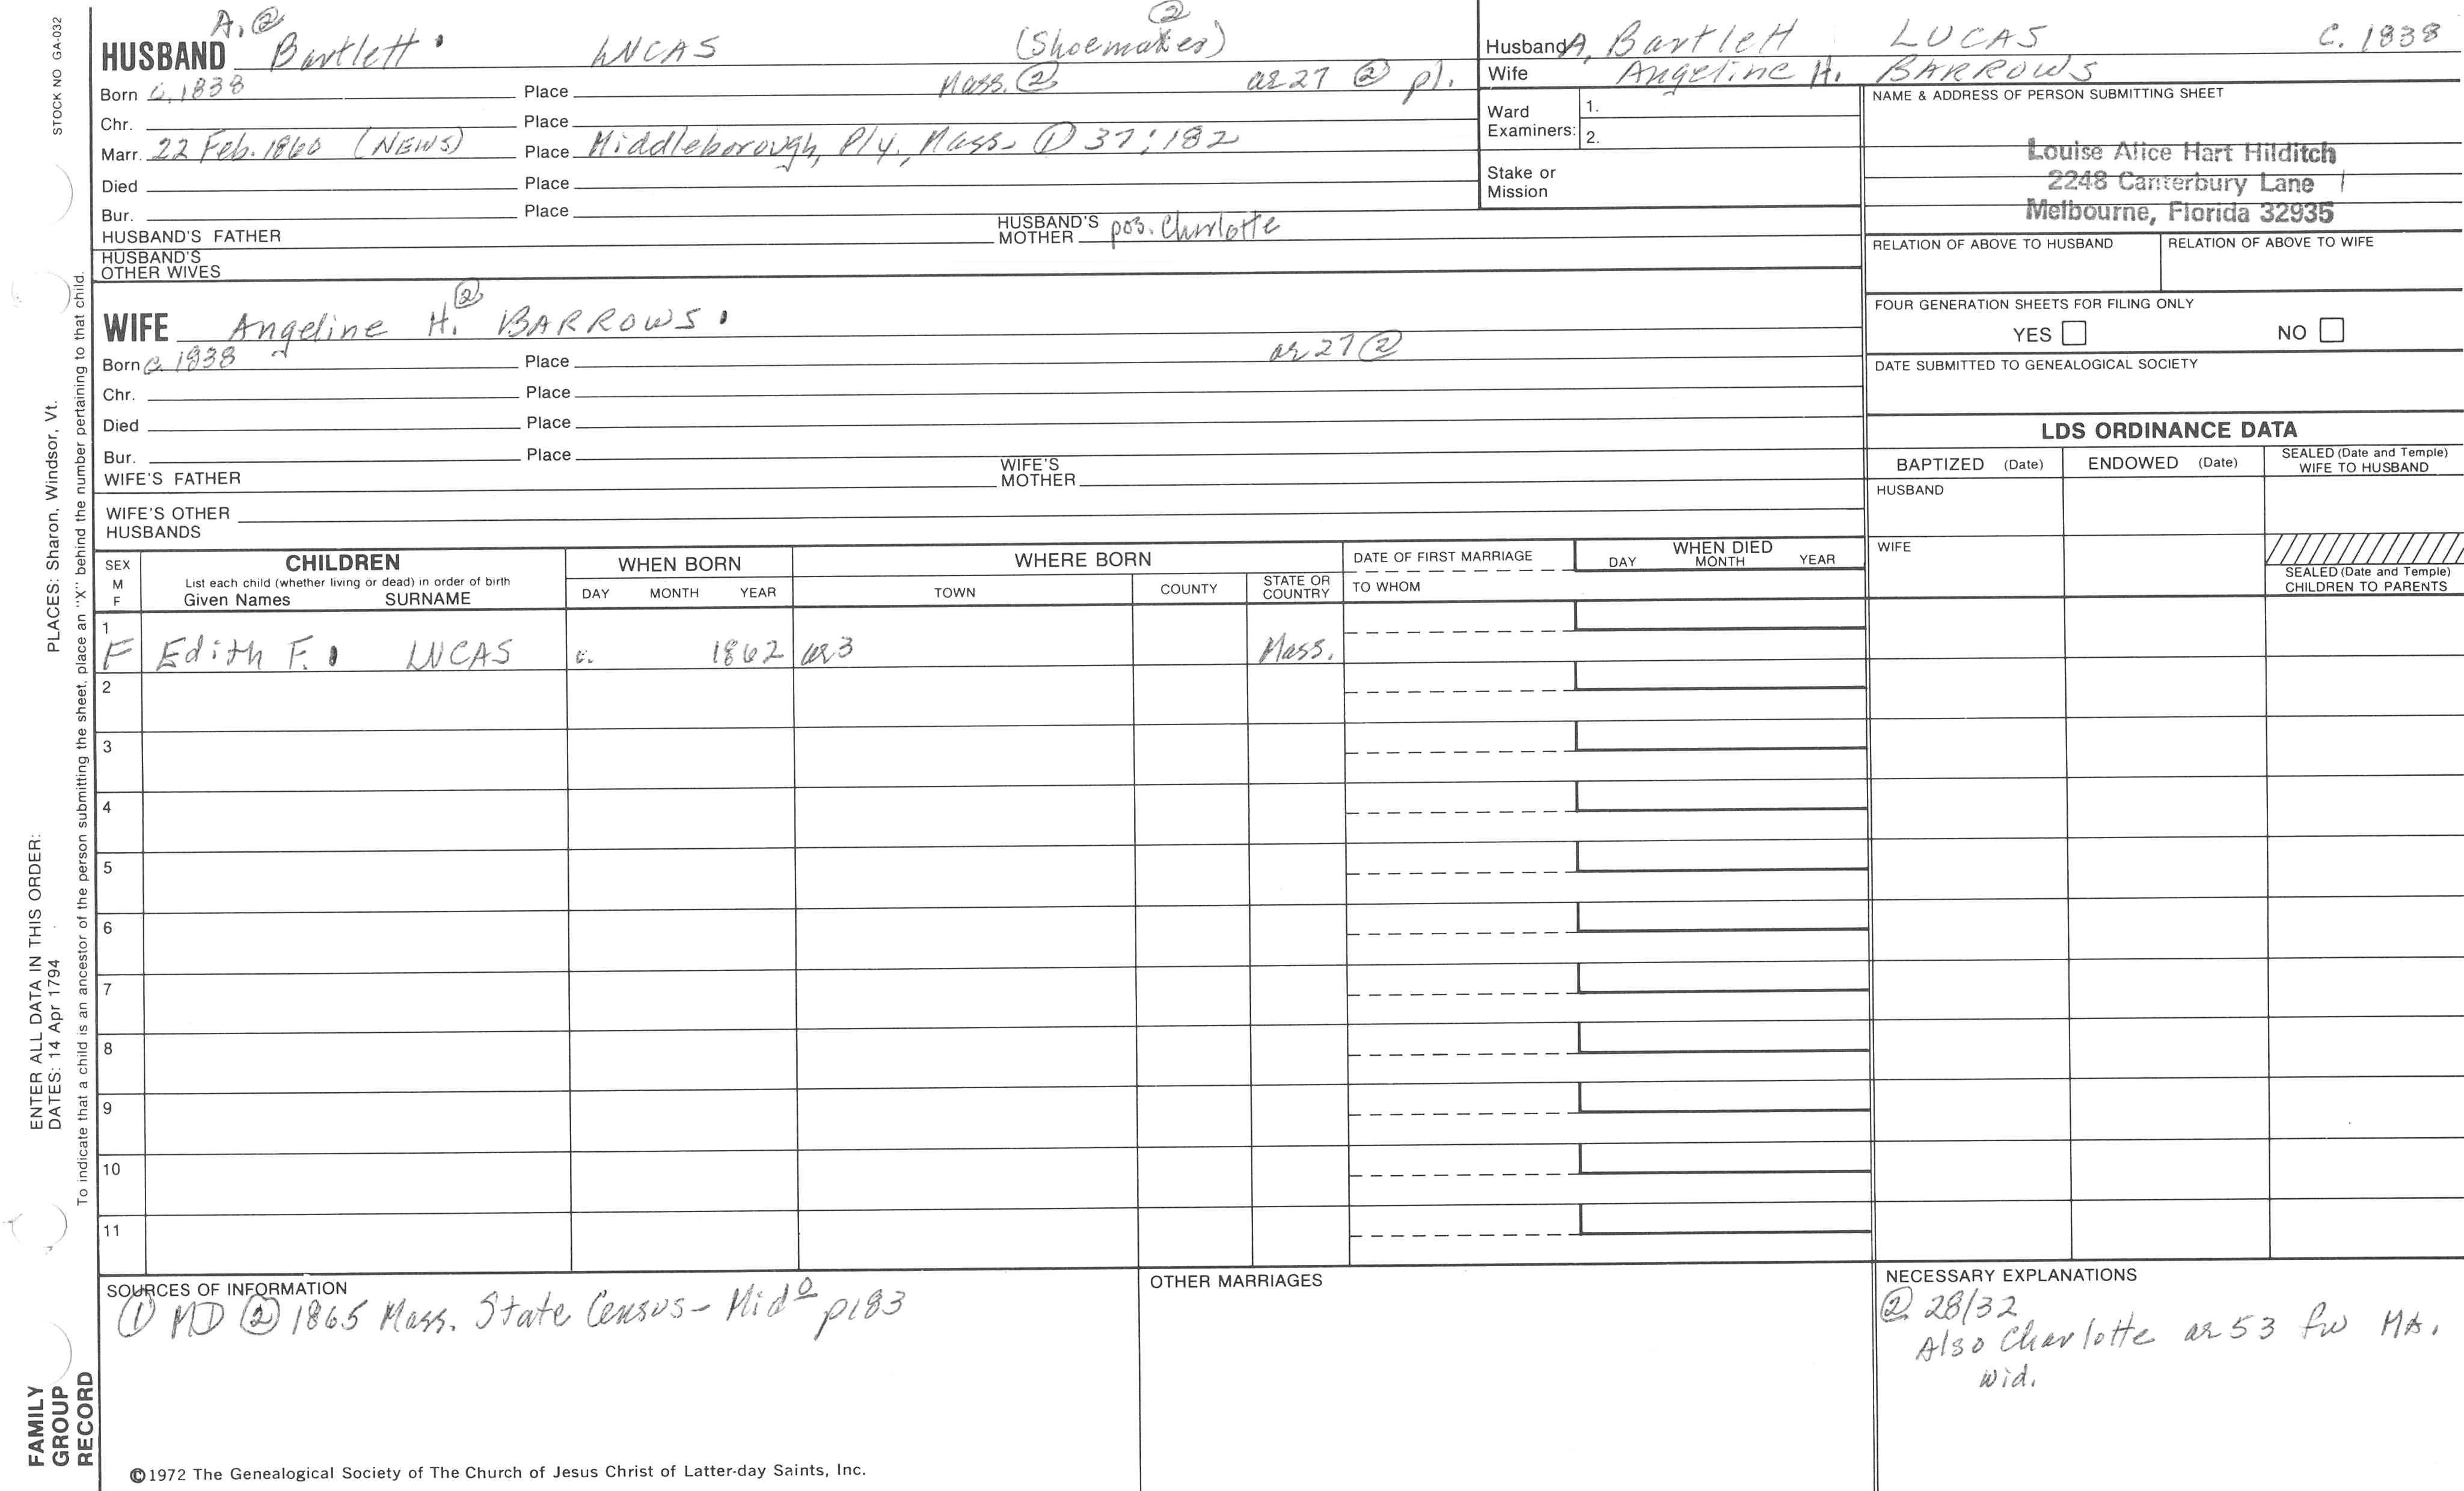 STOCK NO GA-032
A. ②
HUSBAND Bartlett LUCAS (Shoemaker) ②
Born c. 1838 Place Mass. ② ae 27 ② p1.
Chr. Place
Marr. 22 Feb. 1860 (NEWS) Place Middleborough, Ply., Mass. ① 37:182
Died Place
Bur. Place
HUSBAND'S FATHER HUSBAND'S MOTHER pos. Charlotte
HUSBAND'S OTHER WIVES
Husband A. Bartlett LUCAS C. 1838
Wife Angeline H. BARROWS
Ward Examiners: 1.
2.
Stake or Mission
NAME & ADDRESS OF PERSON SUBMITTING SHEET
Louise Alice Hart Hilditch
2248 Canterbury Lane
Melbourne, Florida 32935
RELATION OF ABOVE TO HUSBAND RELATION OF ABOVE TO WIFE
FOUR GENERATION SHEETS FOR FILING ONLY
YES NO
DATE SUBMITTED TO GENEALOGICAL SOCIETY
WIFE Angeline H. ② BARROWS
Born c. 1838 Place ae 27 ②
Chr. Place
Died Place
Bur. Place
WIFE'S FATHER WIFE'S MOTHER
WIFE'S OTHER HUSBANDS
LDS ORDINANCE DATA
BAPTIZED (Date) ENDOWED (Date) SEALED (Date and Temple) WIFE TO HUSBAND
HUSBAND
WIFE
SEALED (Date and Temple) CHILDREN TO PARENTS
SEX M F
CHILDREN
List each child (whether living or dead) in order of birth
Given Names SURNAME
WHEN BORN
DAY MONTH YEAR
WHERE BORN
TOWN COUNTY STATE OR COUNTRY
DATE OF FIRST MARRIAGE
TO WHOM
WHEN DIED
DAY MONTH YEAR
1
F Edith F. LUCAS c. 1862 ae 3 Mass.
2
3
4
5
6
7
8
9
10
11
SOURCES OF INFORMATION
① MD ② 1865 Mass. State Census - Midº p183
OTHER MARRIAGES
NECESSARY EXPLANATIONS
② 28/32
Also Charlotte ae 53 fw MA.
wid.
©1972 The Genealogical Society of The Church of Jesus Christ of Latter-day Saints, Inc.
FAMILY
GROUP
RECORD
ENTER ALL DATA IN THIS ORDER:
DATES: 14 Apr 1794 PLACES: Sharon, Windsor, Vt.
To indicate that a child is an ancestor of the person submitting the sheet, place an "X" behind the number pertaining to that child.